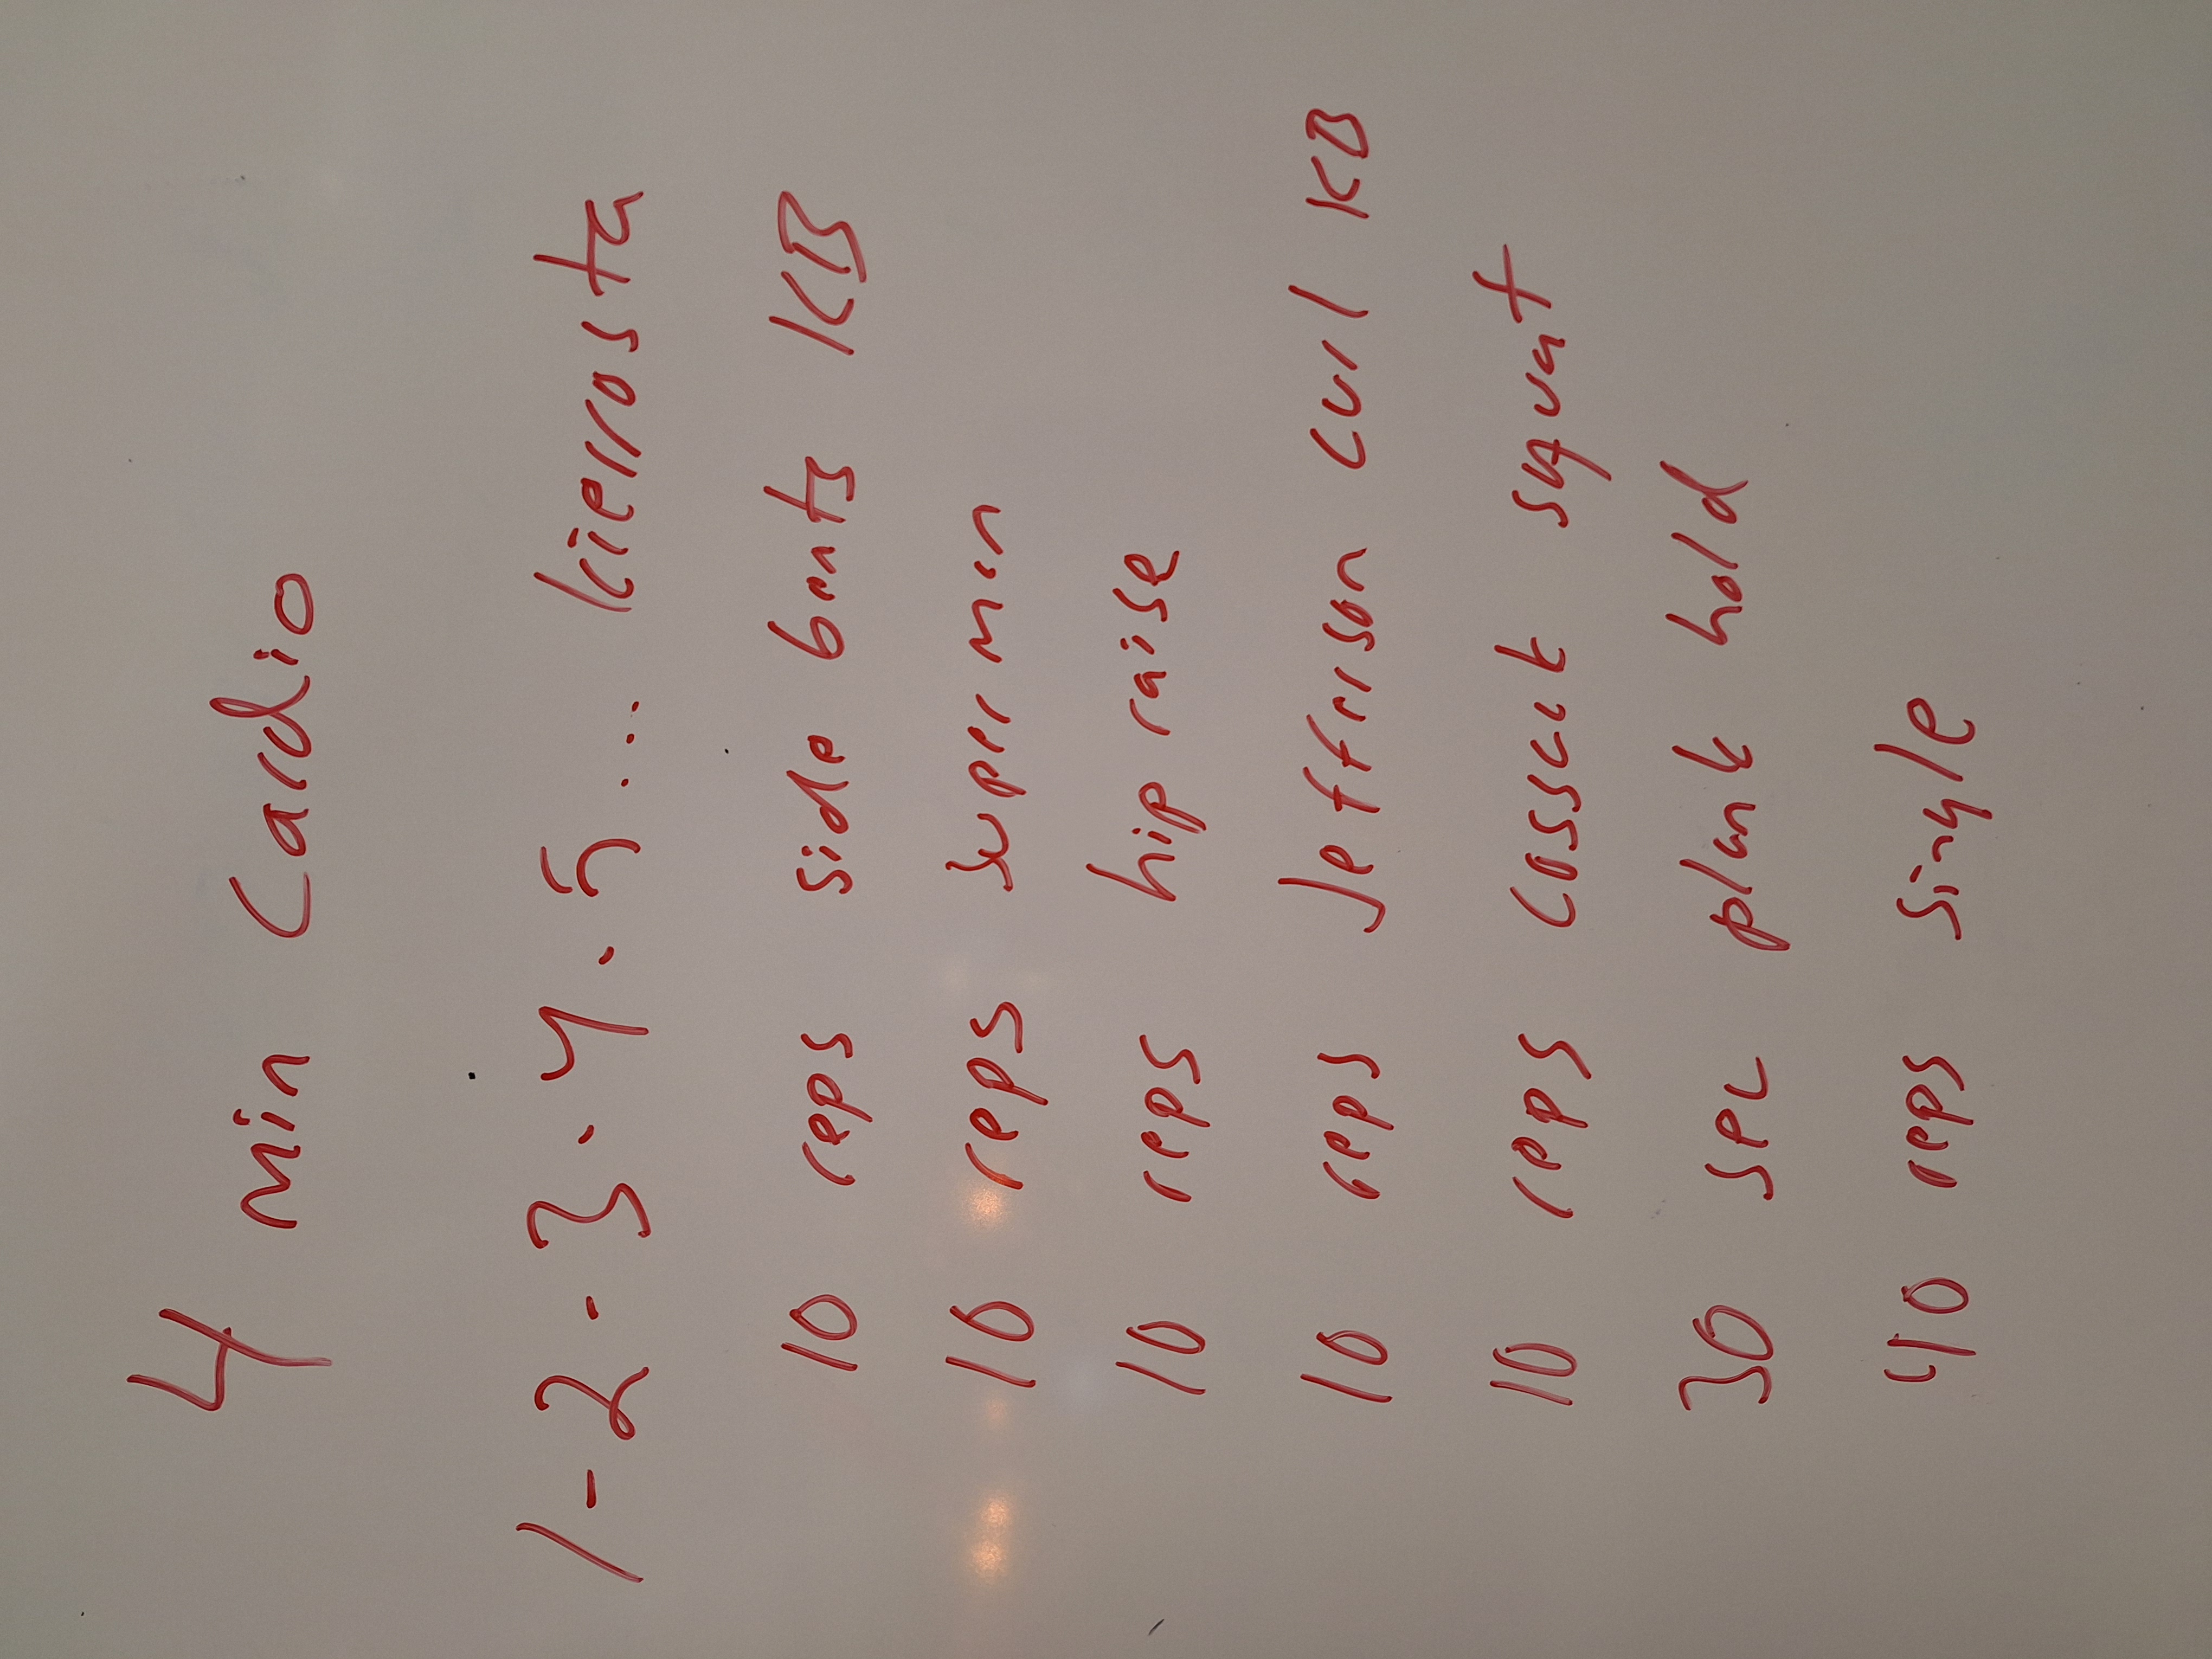 4 min Cardio
1-2-3-4-5... kierrosta
10 reps side bents KB
10 reps superman
10 reps hip raise
10 reps Jeffrison curl KB
10 reps Cossack squat
30 sec plank hold
40 reps single